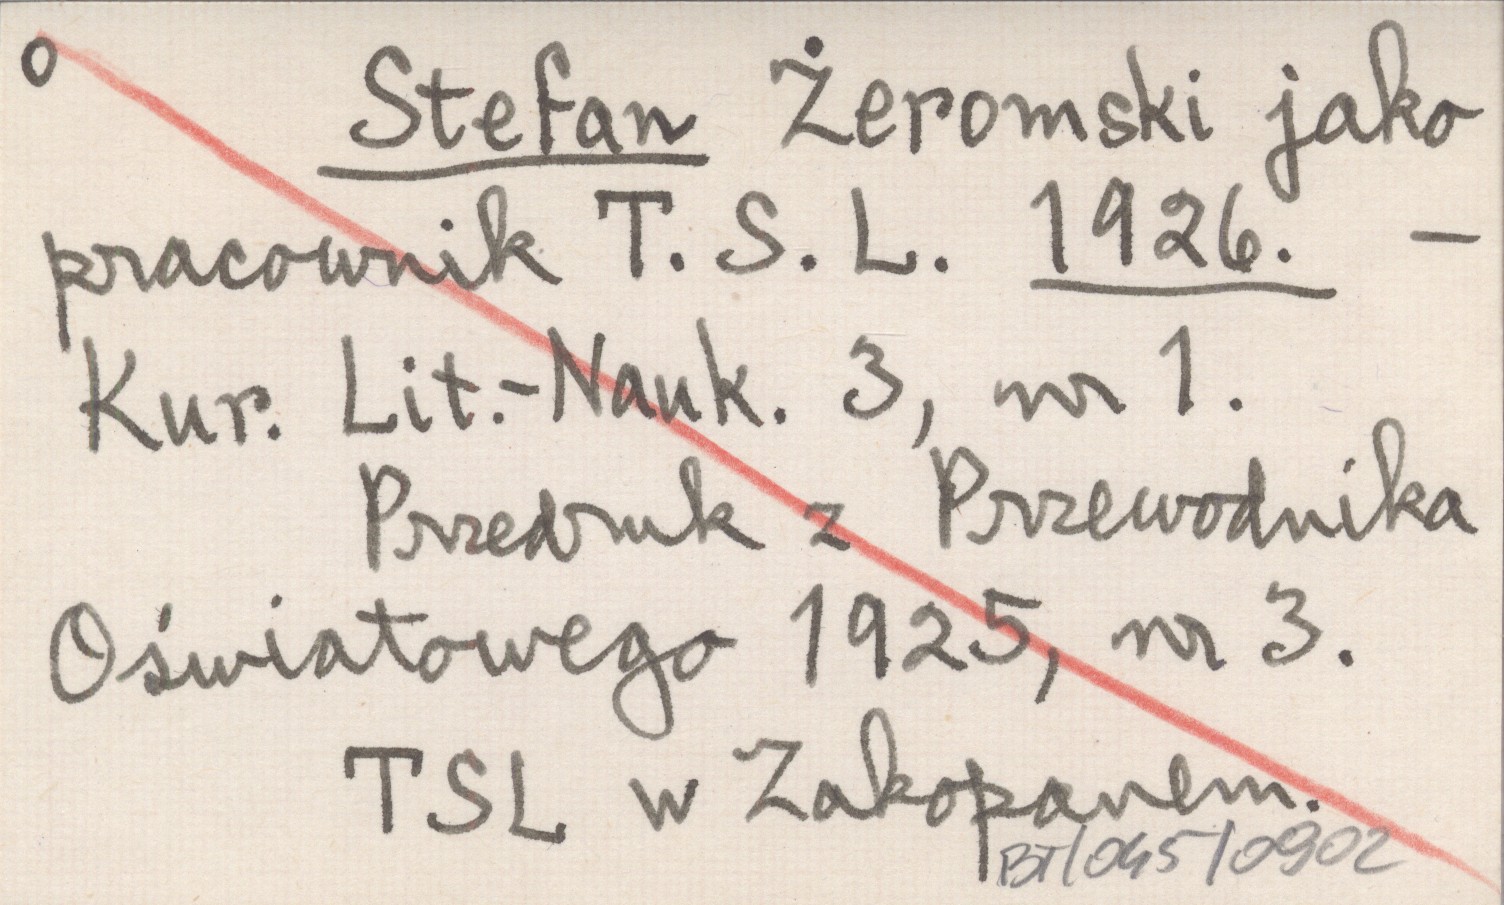 o Stefan Żeromski jako
pracownik T.S.L. 1926. –
Kur. Lit.-Nauk. 3, nr 1.
Przedruk z Przewodnika
Oświatowego 1925, nr 3.
TSL w Zakopanem.
BT/045/0902